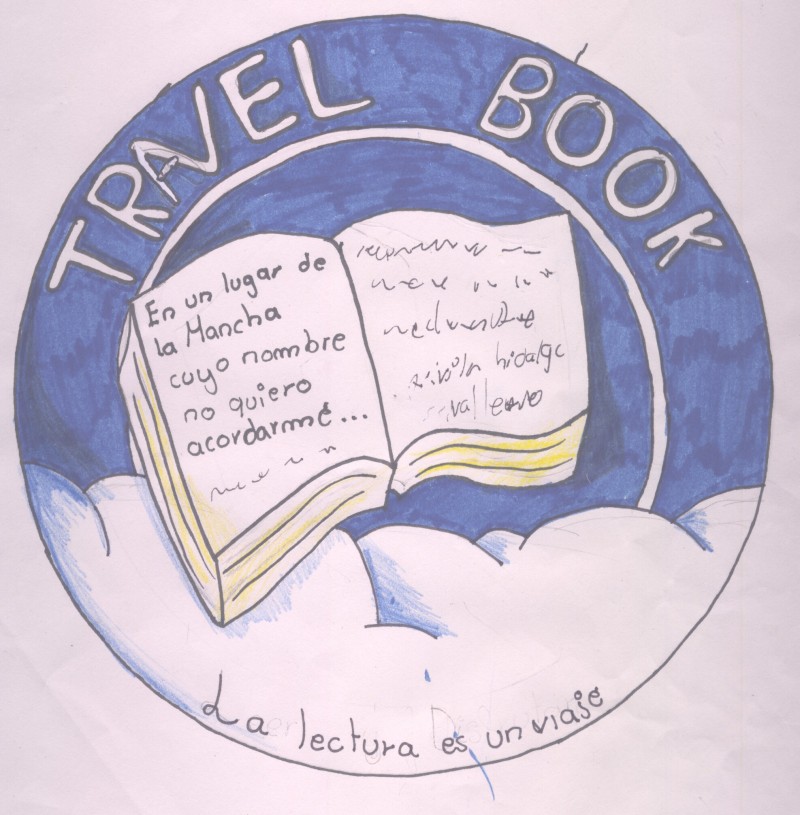 TRAVEL BOOK
En un lugar de
la Mancha
cuyo nombre
no quiero
acordarme...
hidalgo
La lectura es un viaje